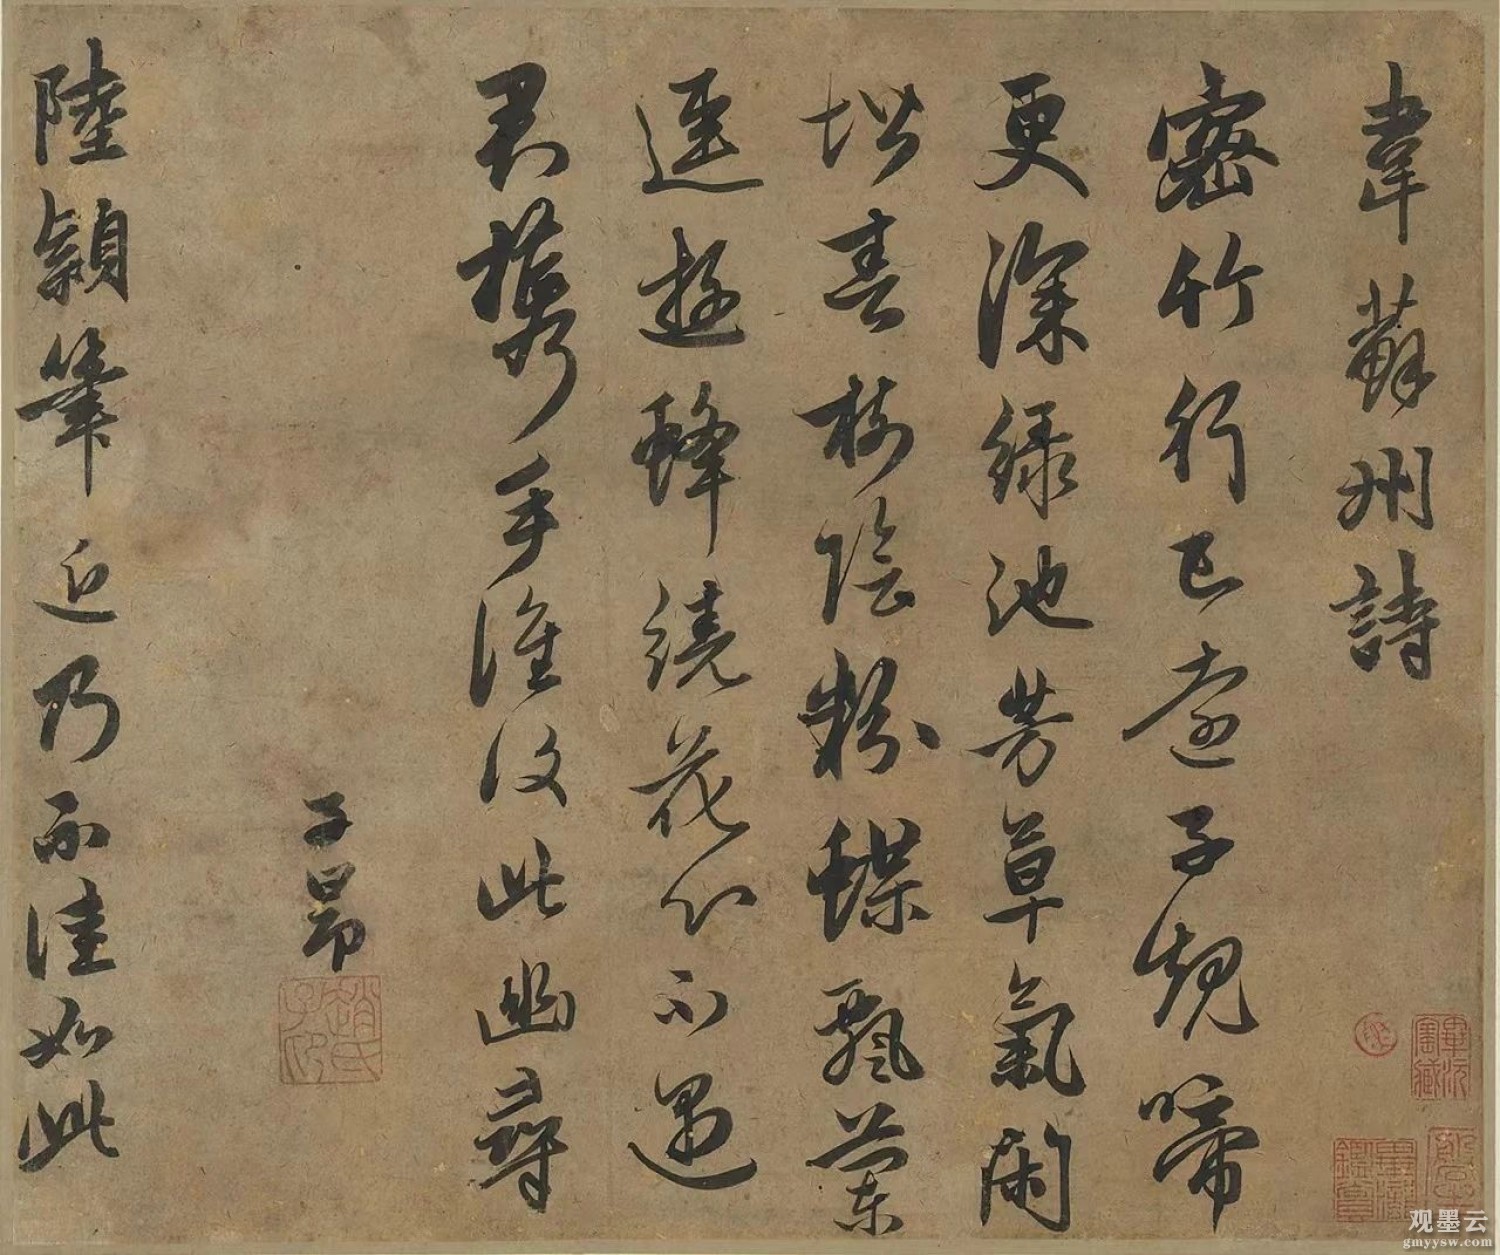 韋蘇州詩
密竹行已遠子規啼
更深綠池芳草氣閑
堦春樹陰粉蝶飄蘭
逕遊蜂繞花心不遇
君攜手誰復此幽尋
子昂
趙氏子昂
陸穎筆近乃不佳如此
观墨云
gmyysw.com